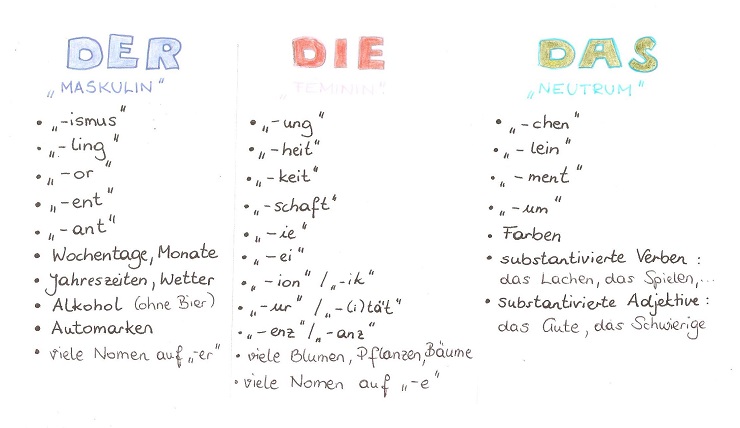 DER
„MASKULIN"
• „-ismus"
• „-ling"
• „-or"
• „-ent"
• „-ant"
• Wochentage, Monate
• Jahreszeiten, Wetter
• Alkohol (ohne Bier)
• Automarken
• viele Nomen auf „-er"
DIE
„FEMININ"
• „-ung"
• „-heit"
• „-keit"
• „-schaft"
• „-ie"
• „-ei"
• „-ion"/„-ik"
• „-ur"/„-(i)tät"
• „-enz"/„-anz"
• viele Blumen, Pflanzen, Bäume
• viele Nomen auf „-e"
DAS
„NEUTRUM"
• „-chen"
• „-lein"
• „-ment"
• „-um"
• Farben
• substantivierte Verben :
das Lachen, das Spielen,...
• substantivierte Adjektive :
das Gute, das Schwierige